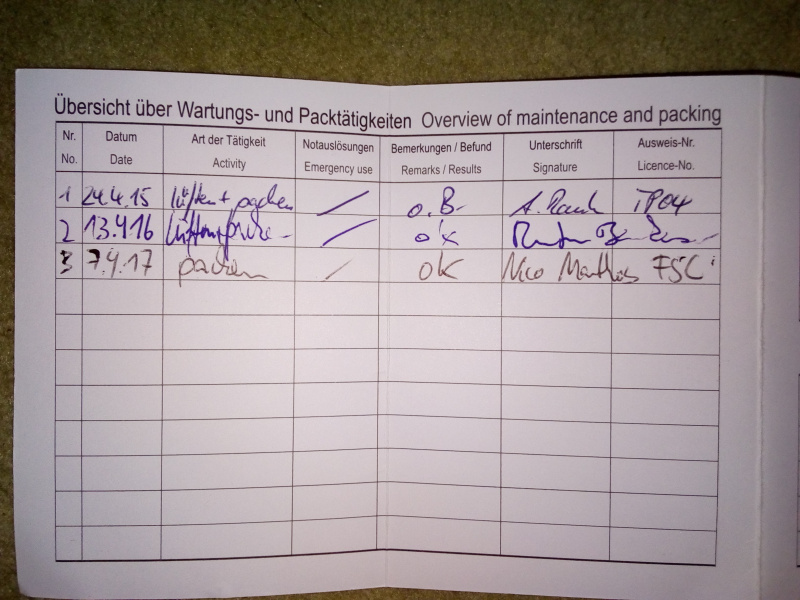 Übersicht über Wartungs- und Packtätigkeiten Overview of maintenance and packing
Nr. Datum Art der Tätigkeit Notauslösungen Bemerkungen / Befund Unterschrift Ausweis-Nr.
No. Date Activity Emergency use Remarks / Results Signature Licence-No.
1 24.4.15 lüften + packen / o.B.
2 13.4.16 / ok
3 7.4.17 packen / ok Nico FSC